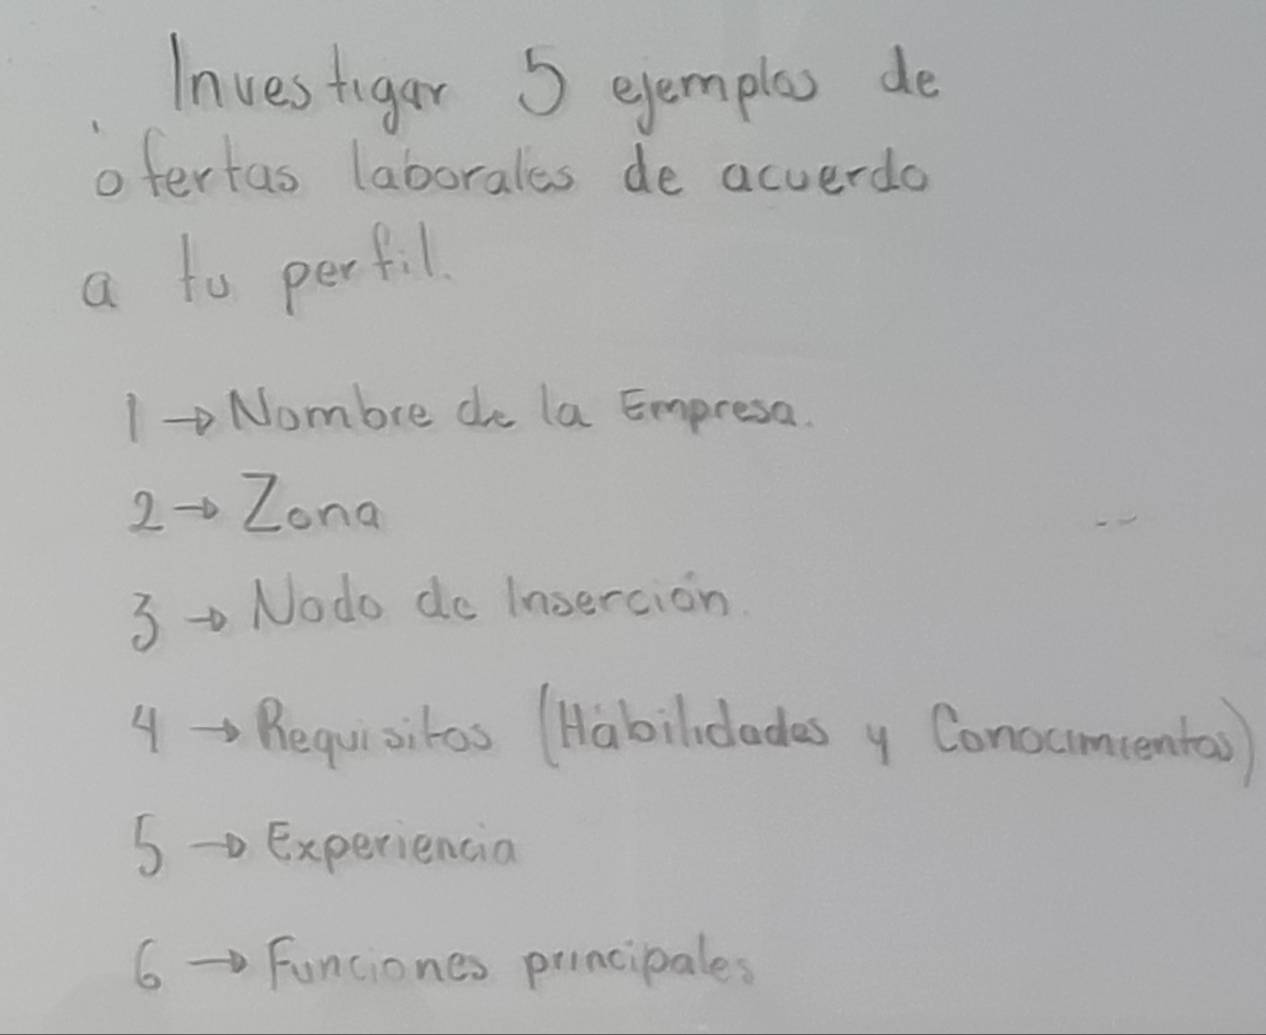 Investigar 5 ejemplos de
ofertas laborales de acuerdo
a tu perfil.
1 → Nombre de la Empresa.
2 → Zona
3 → Nodo de Inserción.
4 → Requisitos (Habilidades y Conocimientos)
5 → Experiencia
6 → Funciones principales